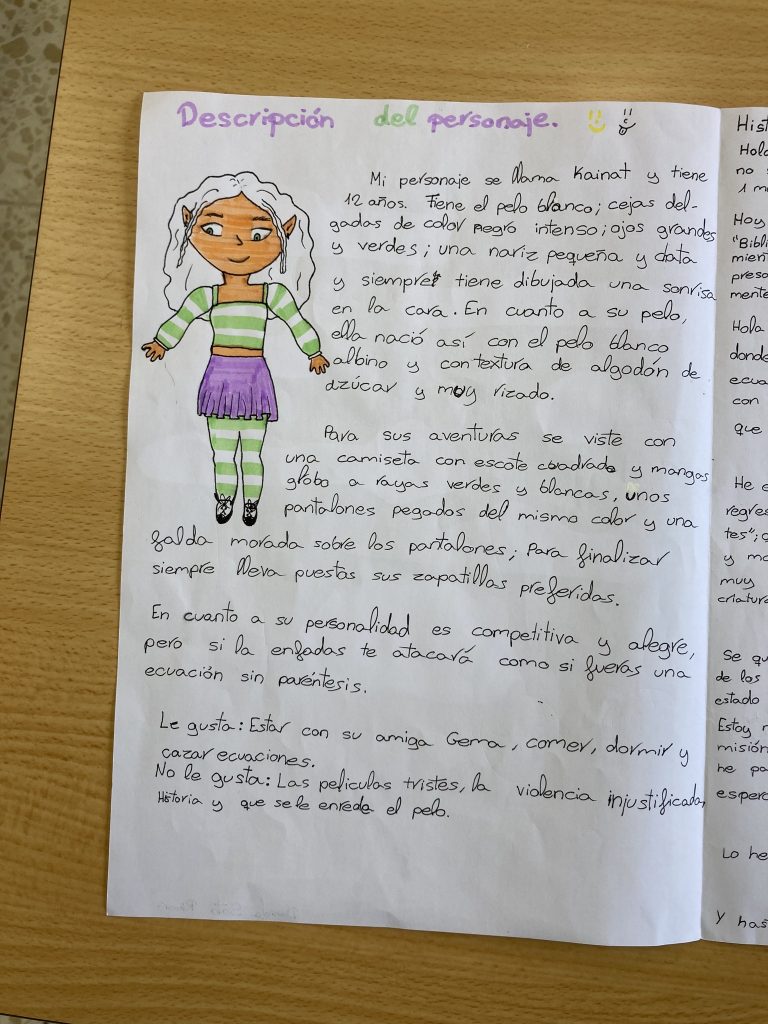 Descripción del personaje.
Mi personaje se llama Kainat y tiene
12 años. Tiene el pelo blanco; cejas del-
gadas de color negro intenso; ojos grandes
y verdes; una nariz pequeña y chata
y siempre tiene dibujada una sonrisa
en la cara. En cuanto a su pelo,
ella nació así con el pelo blanco
albino y con textura de algodón de
azúcar y muy rizado.
Para sus aventuras se viste con
una camiseta con escote cuadrado y mangas
globo a rayas verdes y blancas, unos
pantalones pegados del mismo color y una
falda morada sobre los pantalones; Para finalizar
siempre lleva puestas sus zapatillas preferidas.
En cuanto a su personalidad es competitiva y alegre,
pero si la enfadas te atacará como si fueras una
ecuación sin paréntesis.
Le gusta: Estar con su amiga Gema, comer, dormir y
cazar ecuaciones.
No le gusta: Las peliculas tristes, la violencia injustificada,
Historia y que se le enreda el pelo.
Hist
Hola
no
1 m
Hoy
"Bibli
mien
preso
mente
Hola
donde
ecua
con
que
He e
regres
tes";
y mo
muy
criatura
Se qu
de los
estado
Estoy
misión
he pa
espero
Lo he
y has